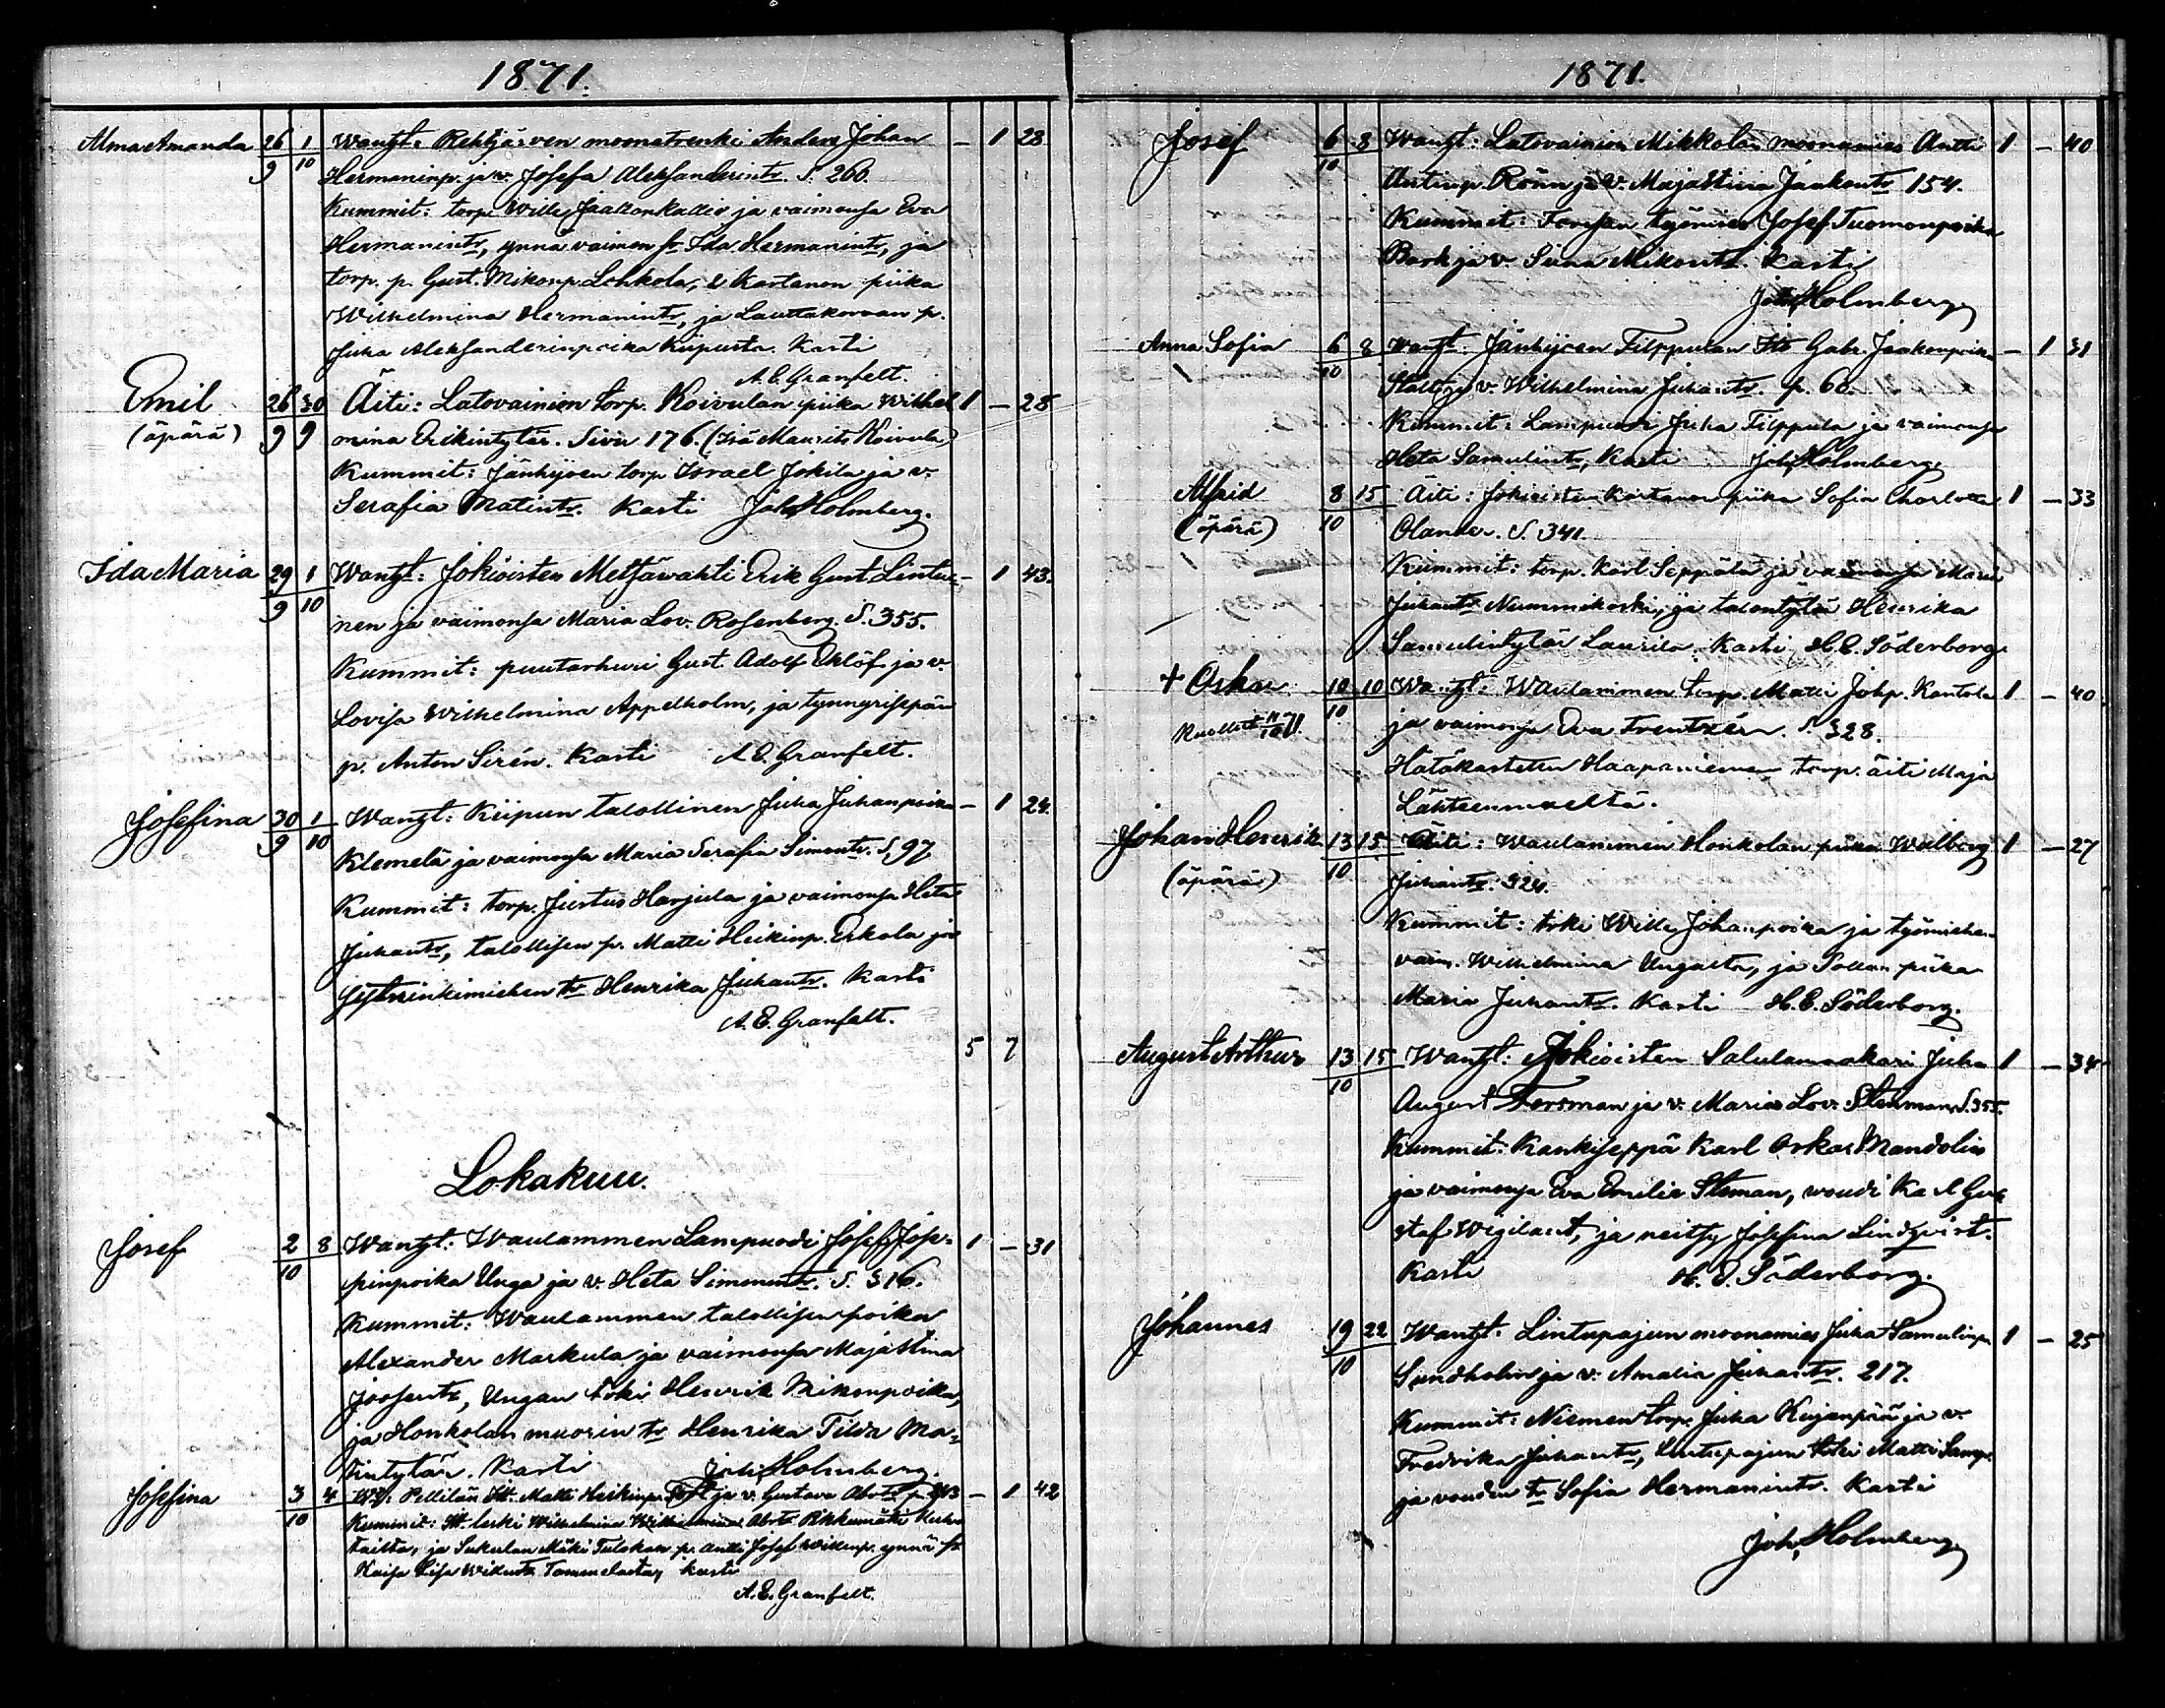 1871.
Alma Amanda 26/9 1/10 Wanht: Rehtjärven moonatrenki Anders Johan — 1 28
Hermaninp. ja v. Josefa Aleksanderintr. S. 260.
Kummit: torp. Wille Jaakonkallio ja vaimonsa Eva
Hermanintr, ynnä vaimon sr Ida Hermanintr, ja
torp. p. Gust. Mikonp. Lehkola, & Kartanon piika
Wilhelmina Hermanintr, ja Lauttakorvan p.
Juha Aleksanderinpoika Kiipusta. Kasti
A. E. Granfelt.
Emil 26/9 30/9 Äiti: Latovainion torp. Koivulan piika Wilhel 1 — 28
(äpärä) mina Erikintytär. Sivu 176. (Isä Maurits Koivula)
Kummit: Jänhijoen torp. Israel Jokila ja v.
Serafia Matintr. Kasti Joh. Holmberg.
Ida Maria 29/9 1/10 Wanht: Jokioisten Metsävahti Erik Gust. Lintu- — 1 43.
nen ja vaimonsa Maria Lov. Rosenberg. S. 355.
Kummit: puutarhuri Gust. Adolf Eklöf ja v.
Lovisa Wilhelmina Appelholm, ja tynnyrisepän
p. Anton Sirén. Kasti A. E. Granfelt.
Josefina 30/9 1/10 Wanht: Kiipun talollinen Juha Juhanpoika — 1 24.
Klemelä ja vaimonsa Maria Serafia Simontr. S. 97
Kummit: torp. Justus Harjula ja vaimonsa Heta
Juhantr, talollisen p. Matti Heikinp. Erkola ja
tr Henrika Juhantr. Kasti
A. E. Granfelt.
5 7
Lokakuu.
Josef 2/10 8 Wanht: Waulammen Lampuodi Josef Jose- 1 — 31
pinpoika Unga ja v. Heta Simonintr. S. 316.
Kummit: Waulammen talollisen poika
Alexander Markula ja vaimonsa Maja Stina
Joosentr, Ungan trki Henrik Mikonpoika,
ja Honkolan muorin tr Henrika Tilda Ma-
tintytär. Kasti Joh. Holmberg.
Josefina 3/10 4 Wht: Pellilän Itt. Matti Heikinp. ja v. Gustava Abrtr p. — 1 42
Kummit: Itt. leski Wilhelmina Abrtr
ja Sukulan Mäki Tulokan p. Antti Josef Willenp. ynnä sr
Kaisa Lisa Tammelasta, kasti
A. E. Granfelt.
1871.
Josef 6/10 8 Wanht: Latovainion Mikkolan moonamies Antti 1 — 40
Antinp. Rönn ja v. Maja Stiina Jaakontr 154.
Kummit: Forssan työmies Josef Tuomonpoika
Bark ja v. Siina Mikontr. Kasti
Joh. Holmberg
Anna Sofia 6/10 8 Wanht: Jänhijoen Filppulan Itt. Gabr. Jaakonpoika — 1 31
Stolt ja v. Wilhelmina Juhantr. p. 60.
Kummit: Lampuodi Juha Filppula ja vaimonsa
Heta Samulintr, Kasti Joh. Holmberg.
Alfrid 8/10 15 Äiti: Jokioisten Kartanon piika Sofia Charlotta 1 — 33
(äpärä) Olander. S. 341.
Kummit: torp. Karl Seppälä ja vaimonsa Maria
Juhantr Nummikoski, ja talontytär Henrika
Samulintytär Laurila. Kasti H. E. Söderborg
+ Oskar 10/10 10 Wanht: Waulammen torp. Matti Johp. Kantola 1 — 40
Kuollut 11/10 71. ja vaimonsa Eva Frentzén. S. 328.
Hätäkastettu Haapaniemen torp. äiti Maja
Lähteenmaeltä.
Johan Henrik 13/10 15 Äiti: Waulammen Honkolan piika Wilborg 1 — 27
(äpärä) Juhantr. 324.
Kummit: trki Wille Johanpoika ja työmiehen
vaim. Wilhelmina Ungalta, ja Pollan piika
Maria Juhantr. Kasti H. E. Söderborg.
August Arthur 13/10 15 Wanht: Jokioisten Satulamaakari Juha 1 — 34
August Forsman ja v. Maria Lov. Stenman S. 355.
Kummit: Kankiseppä Karl Oskar Mandolin
ja vaimonsa Eva Emilia Steman, voudi Karl Gus
staf Wigilant, ja neitsy Josefina Lindqvist.
Kasti H. E. Söderborg.
Johannes 19/10 22 Wanht: Lintupajun moonamies Juha Samulinp. 1 — 25
Sundholm ja v. Amalia Juhantr. 217.
Kummit: Niemen torp. Juha Kujanpää ja v.
Fredrika Juhantr, Lintupajun trki Matti Samp.
ja voudin tr Sofia Hermanintr. Kasti
Joh. Holmberg